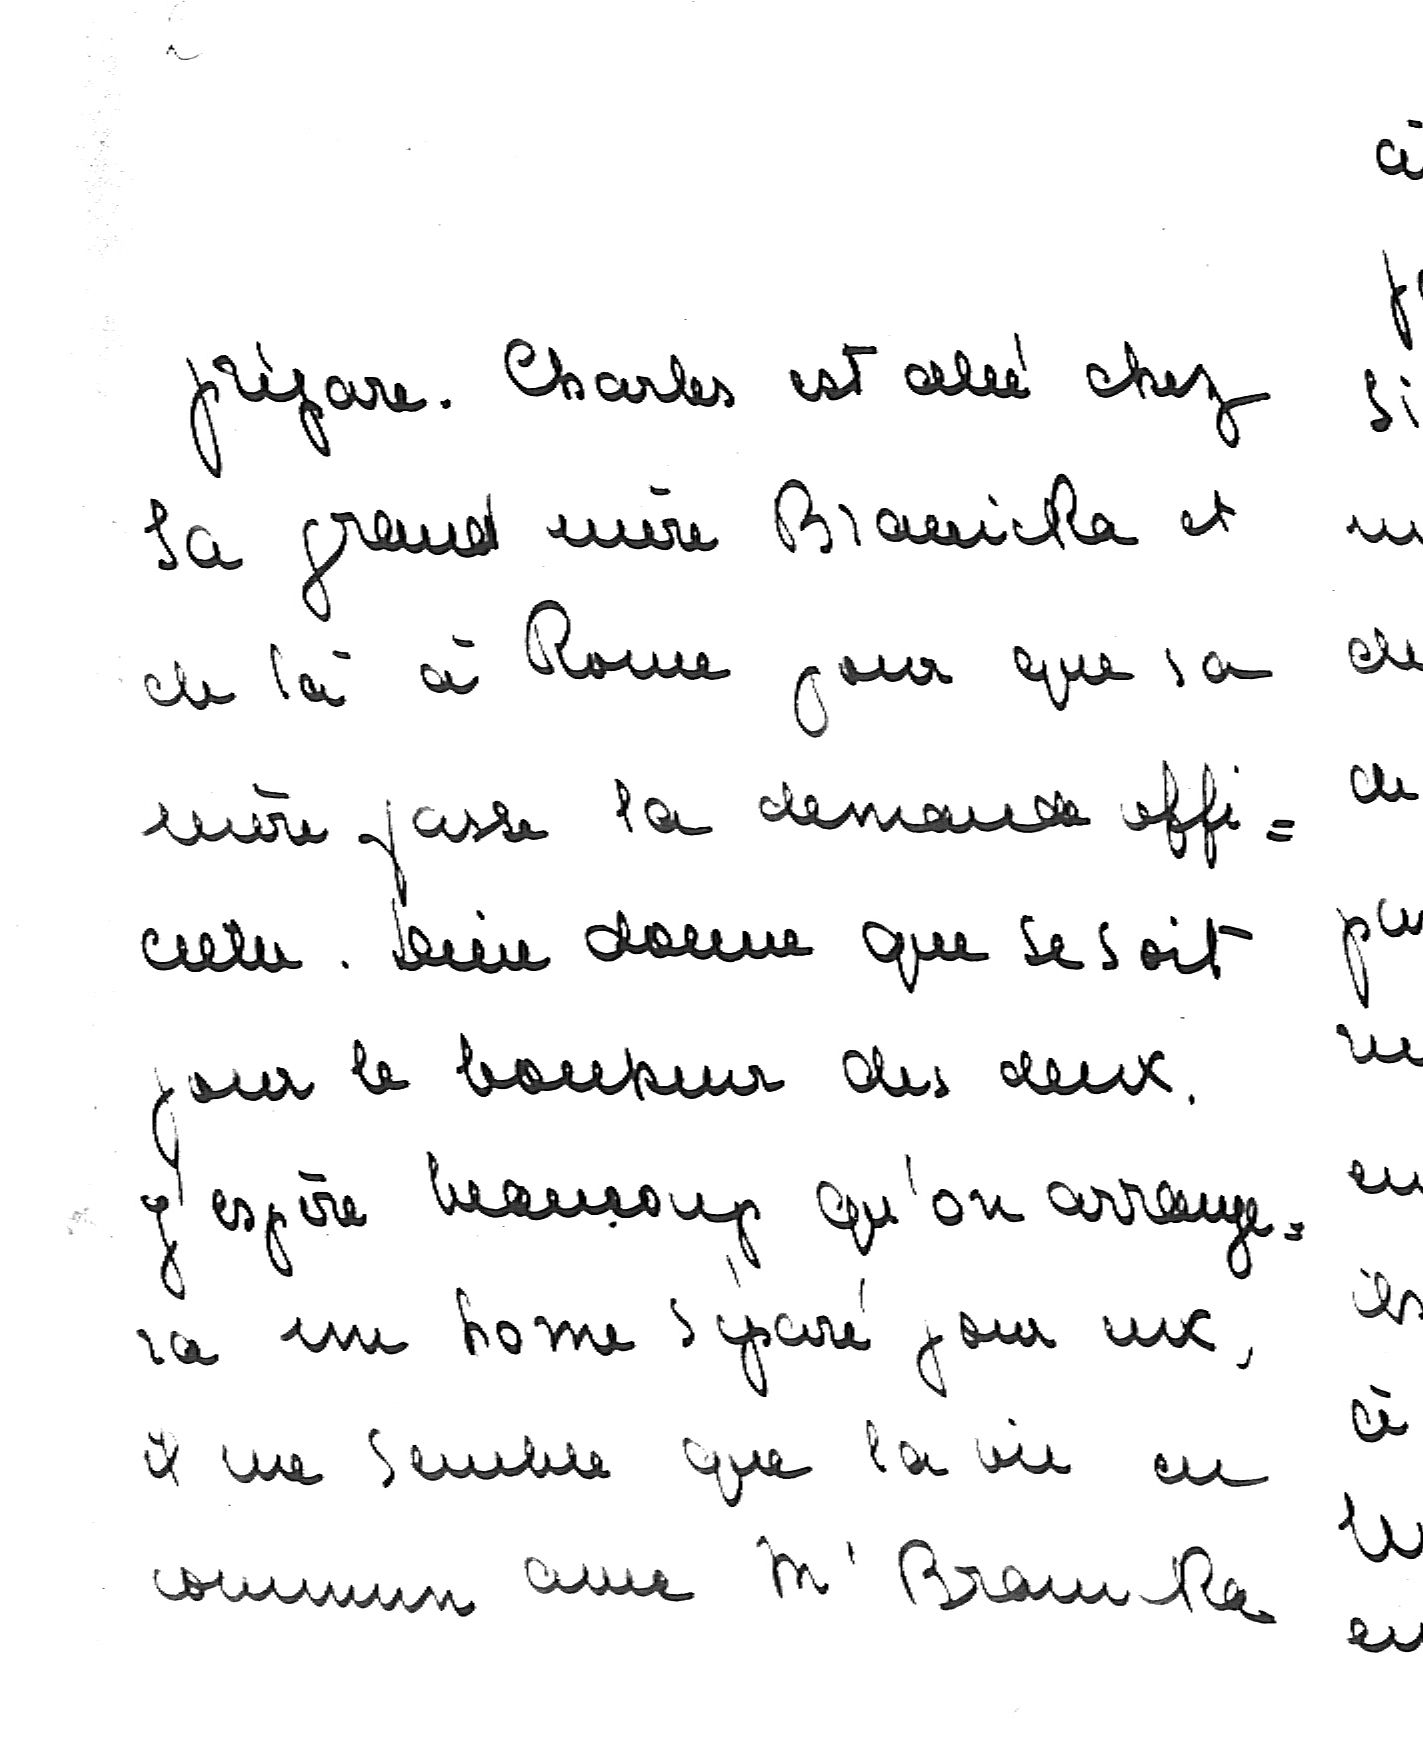 prépare. Charles est allé chez
sa grand mère Branicka et
de là à Rome pour que sa
mère fasse la demande offi=
cielle. Dieu donne que se soit
pour le bonheur des deux.
J'espère beaucoup qu'on arrange=
ra un home séparé pour eux,
il me semble que la vie en
commun avec M' Branicka